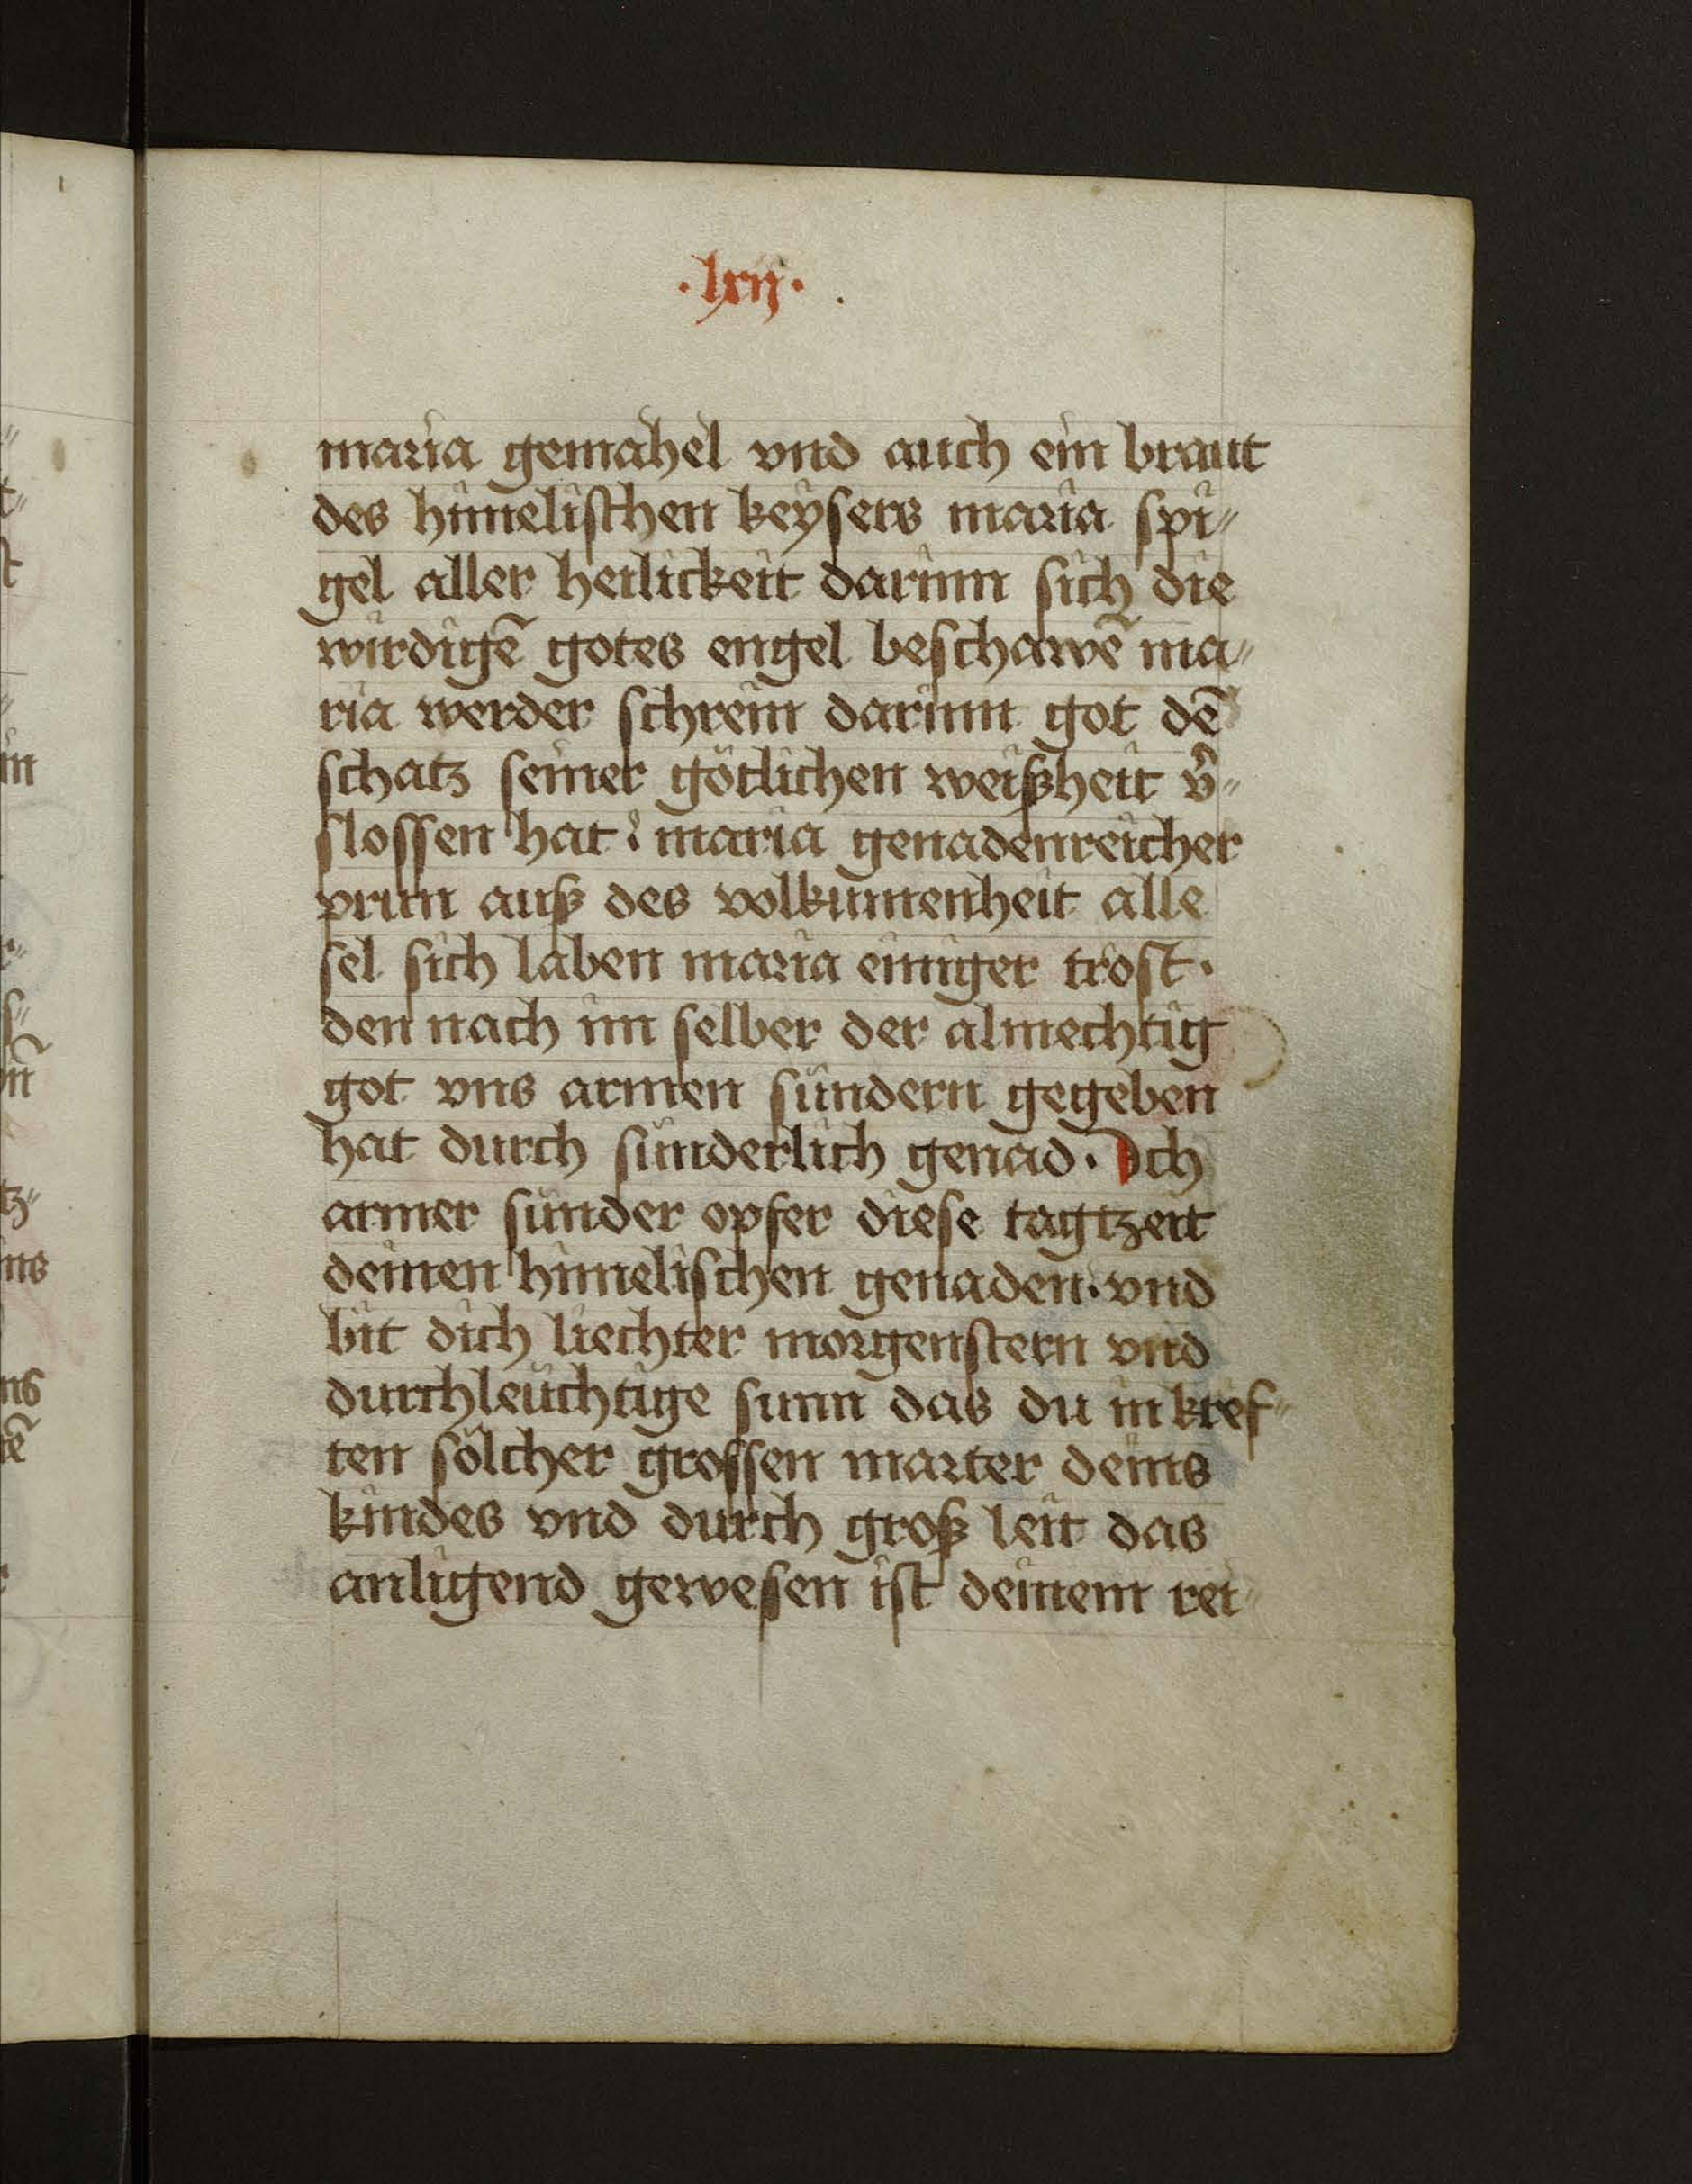 ·lxij·
maria gemahel vnd auch ein braut
des himelischen keysers maria spi⸗
gel aller heilickeit darinn sich die
wirdigē gotes engel beschawē ma⸗
ria werder schrein darinn got dē
schatz seiner götlichen weißheit v̾⸗
slossen hat · maria genadenreicher
prun auß des volkumenheit alle
sel sich laben maria einiger trost ·
den nach im selber der almechtig
got vns armen sündern gegeben
hat durch sünderlich genad · Ich
armer sünder opfer diese tagtzeit
deinen himelischen genaden · vnd
bit dich liechter morgenstern vnd
durchleüchtige sunn das du in kref⸗
ten sölcher grossen marter deins
kindes vnd durch groß leit das
anligend gewesen ist deinem rei⸗